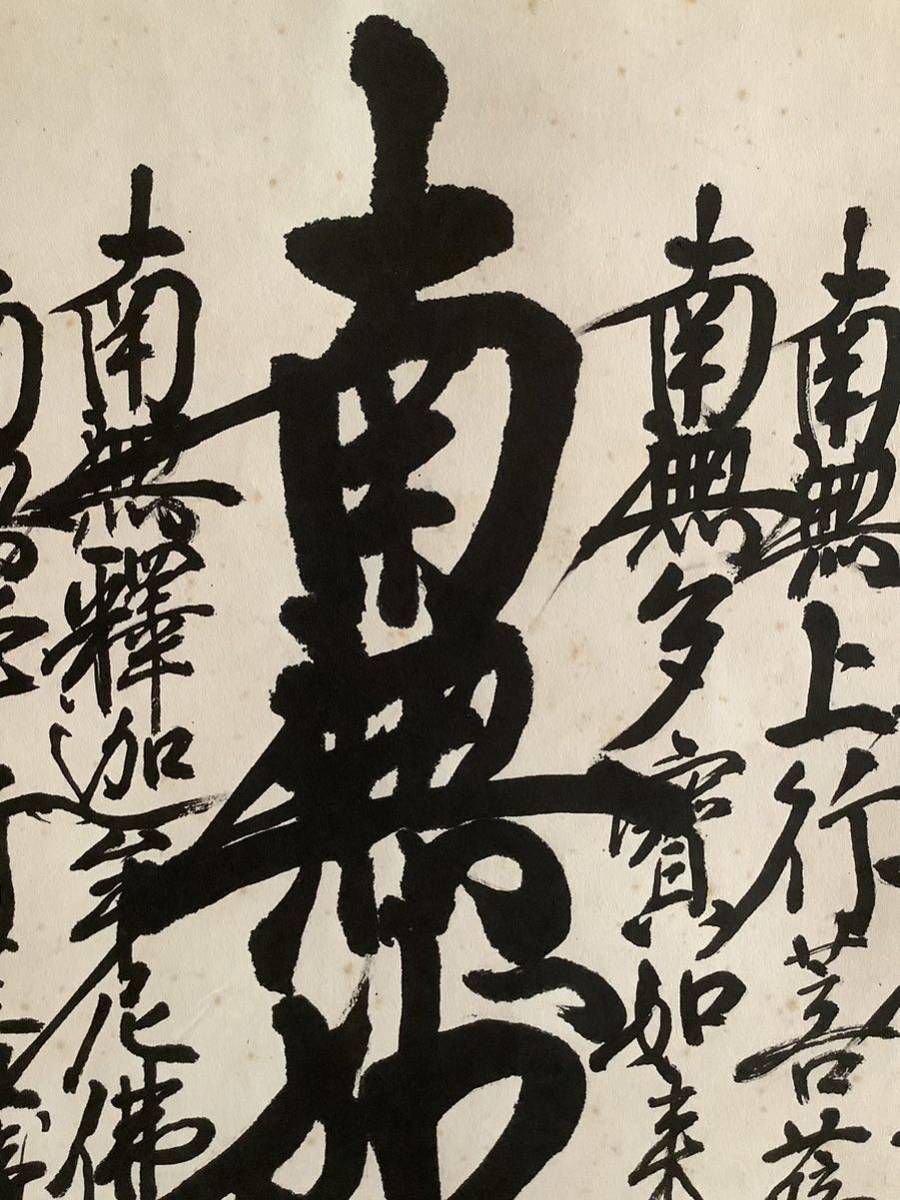 南無上行菩薩
南無多寶如来
南無妙
南無釋迦牟尼佛